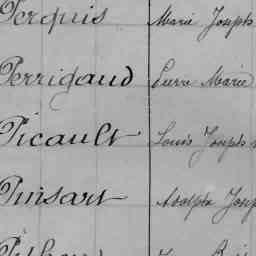 Perquis Marie Joseph
Perrigaud Pierre Marie
Picault Louis Joseph
Pinsart Adolphe Josep